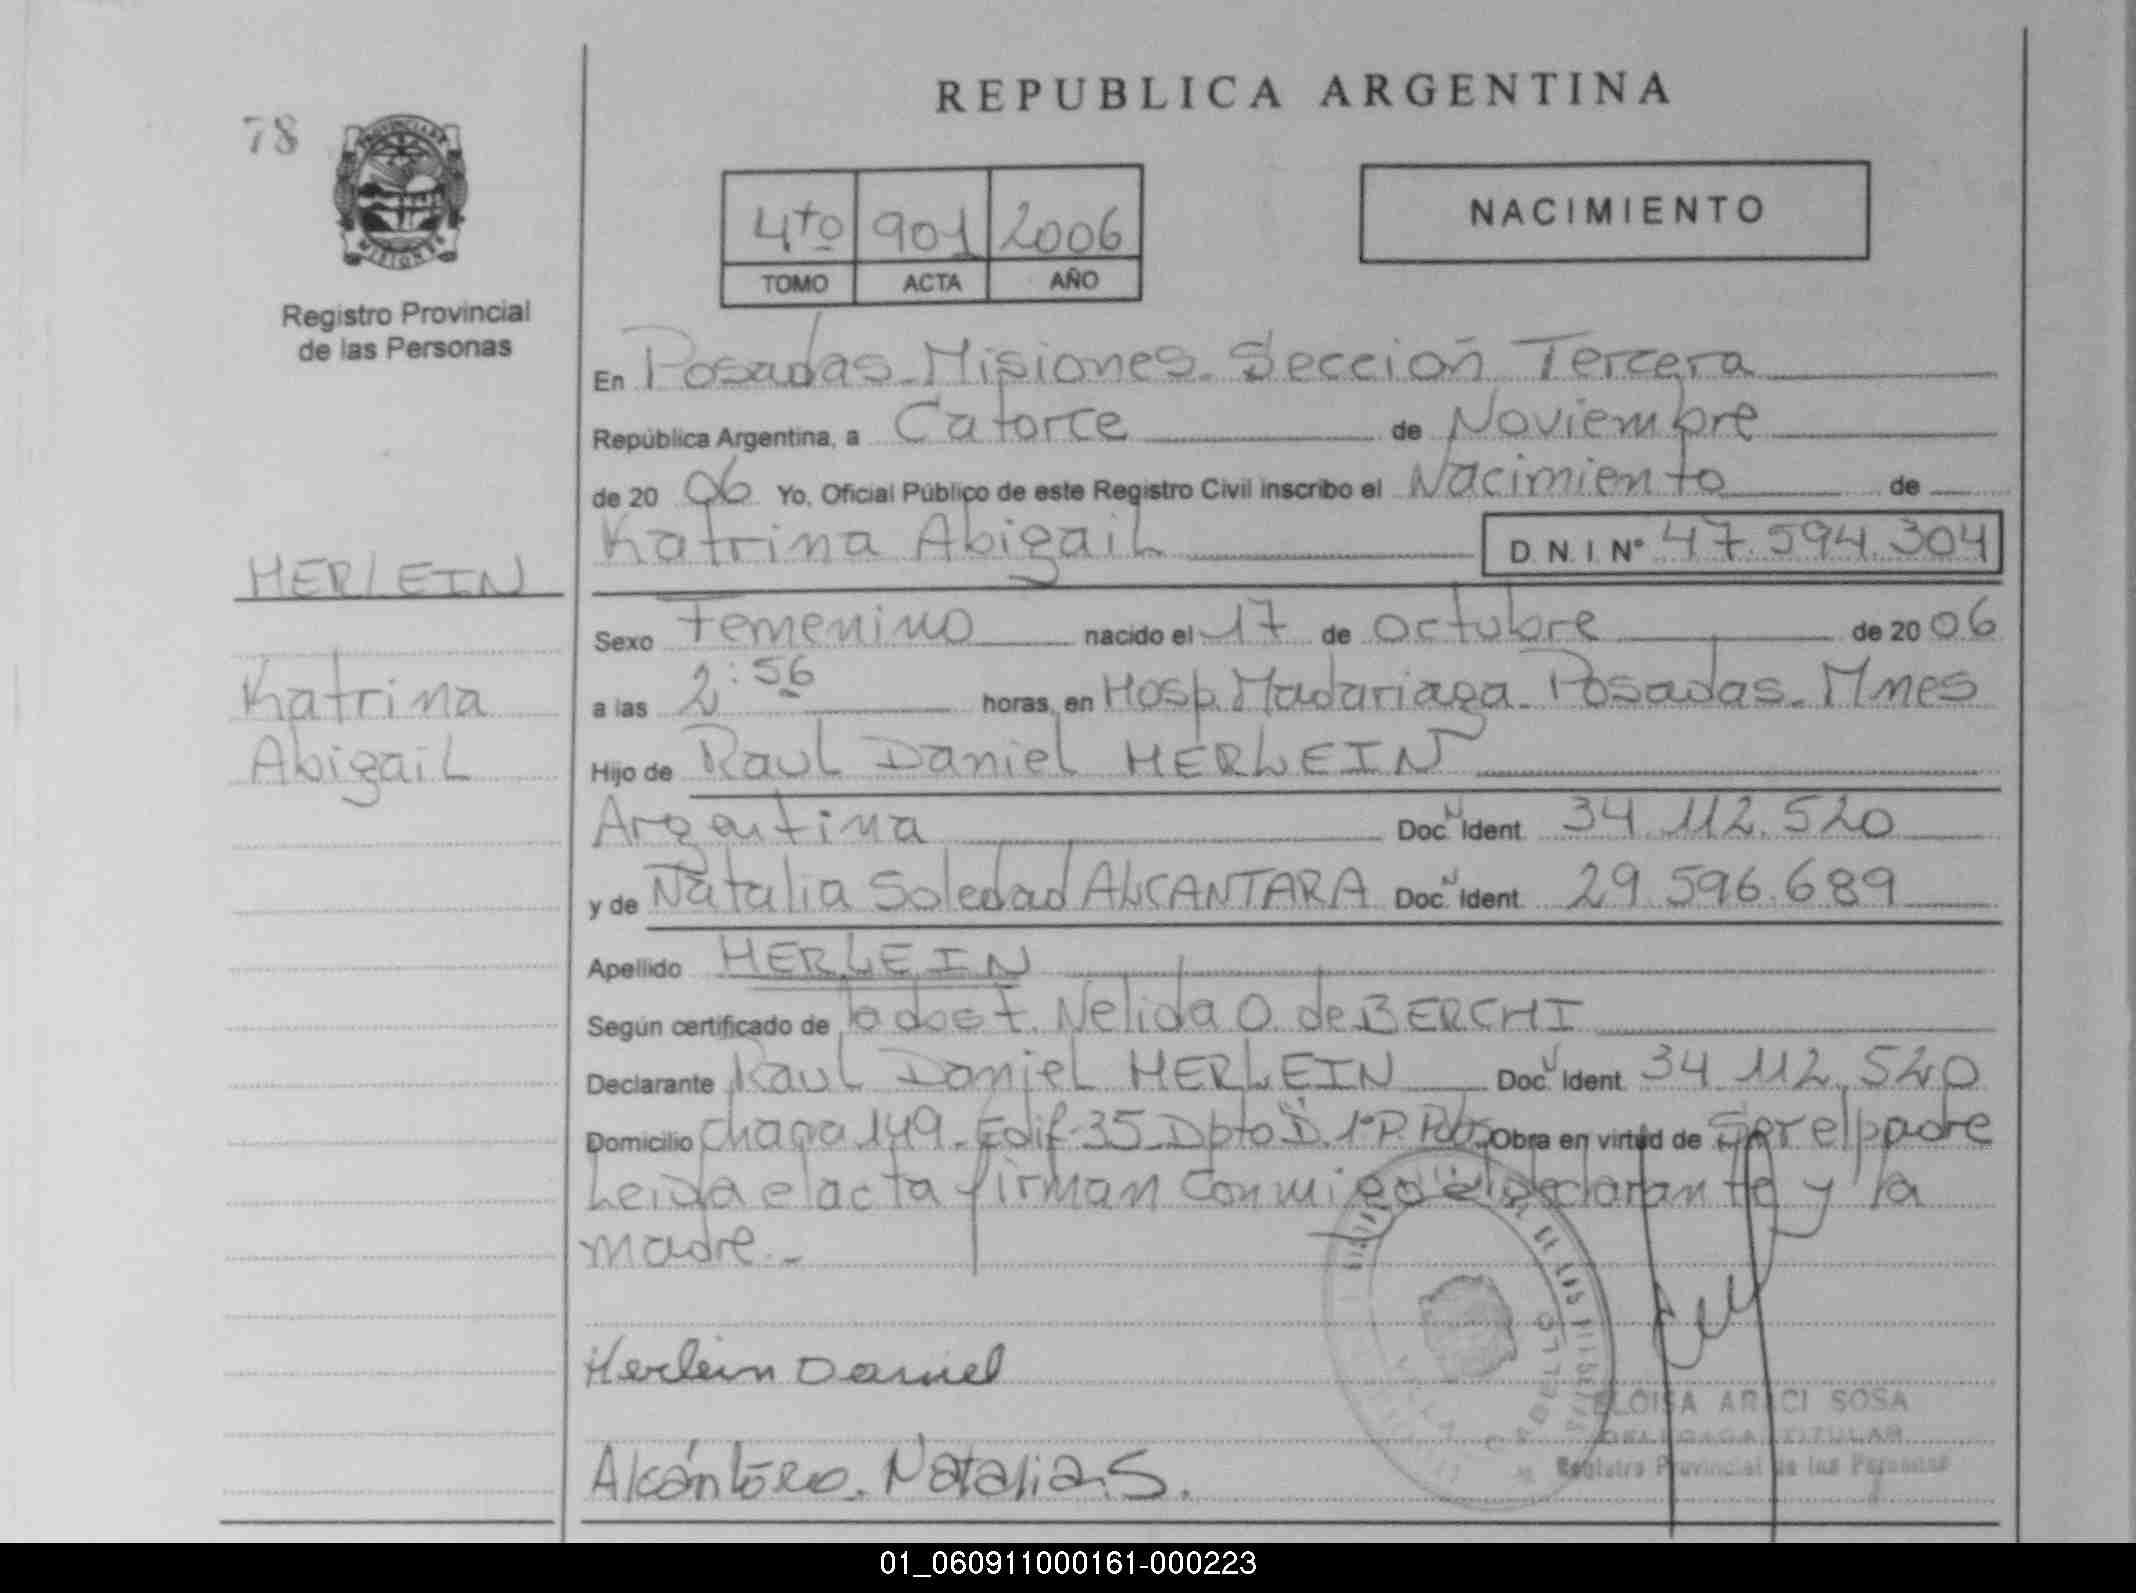 REPUBLICA ARGENTINA
78
4to 901 2006
TOMO ACTA AÑO
NACIMIENTO
Registro Provincial
de las Personas
En Posadas - Misiones - Sección Tercera
República Argentina, a Catorce de Noviembre
de 20 06 Yo, Oficial Público de este Registro Civil inscribo el Nacimiento de
Katrina Abigail D. N. I. Nº 47.594.304
HERLEIN
Katrina
Abigail
Sexo Femenino nacido el 17 de octubre de 20 06
a las 2:56 horas, en Hosp. Madariaga - Posadas - Mnes
Hijo de Raul Daniel HERLEIN
Argentina Doc. Ident. 34.112.520
y de Natalia Soledad ALCANTARA Doc. Ident. 29.596.689
Apellido HERLEIN
Según certificado de Nelida O. de BERCHI
Declarante Raul Daniel HERLEIN Doc. Ident. 34.112.520
Domicilio Chacra 149 - Edif. 35 - Dpto D. 1º P. Obra en virtud de Ser el padre
Leida el acta firman conmigo el declarante y la
madre.-
Herlein Daniel
Alcántara. Natalia S.
ELOISA ARACI SOSA
DELEGADA TITULAR
Registro Provincial de las Personas
01_060911000161-000223